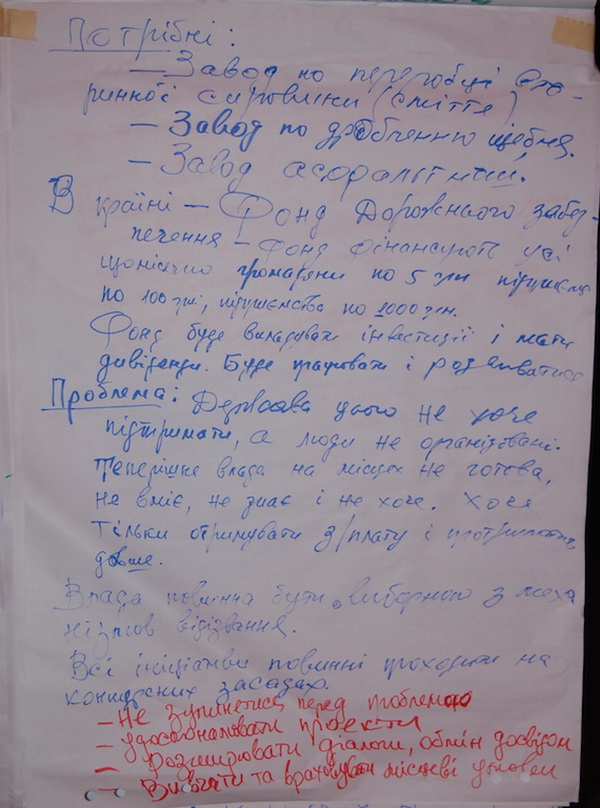 Потрібні:
— Завод по переробці вто-
ринної сировини (сміття)
— Завод по дробленню щебня.
— Завод асфальтний.
В країні — Фонд Дорожнього забез-
печення — Фонд фінансують усі
щомісячно громадяни по 5 грн підпри
по 100 грн, підприємства по 1000 грн.
Фонд буде вкладувати інвестиції і мати
дивіденди. Буде працювати і розвиватися
Проблема: Держава цього не хоче
підтримати, а люди не організовані.
Теперішня влада на місцях не готова,
не вміє, не знає і не хоче. Хоче
тільки отримувати з/плату і протриматись
довше.
Влада повинна бути виборною з меха
нізмов відізвання.
Всі ініціативи повинні проходити на
конкурсних засадах.
— Не зупинятися перед проблемою
— удосконалювати проекти
— розширювати діалоги, обмін досвідом
— Вивчати та враховувати місцеві умови